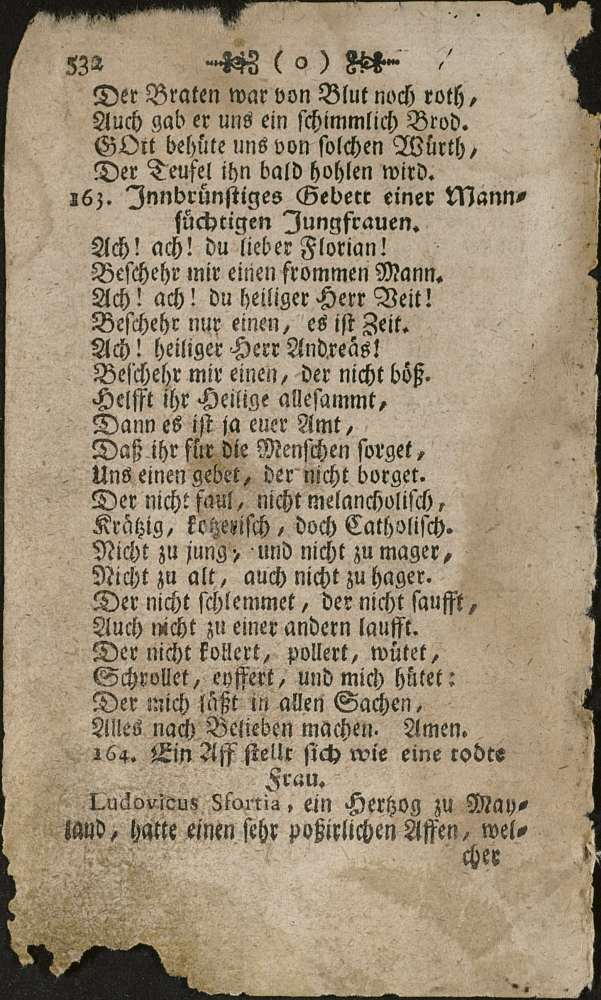 532 ( o )
Der Braten war von Blut noch roth,
Auch gab er uns ein schimmlich Brod.
GOtt behüte uns von solchen Würth,
Der Teufel ihn bald hohlen wird.
163. Innbrünstiges Gebett einer Mann-
süchtigen Jungfrauen.
Ach! ach! du lieber Florian!
Beschehr mir einen frommen Mann.
Ach! ach! du heiliger Herr Veit!
Beschehr nur einen, es ist Zeit.
Ach! heiliger Herr Andreäs!
Beschehr mir einen, der nicht böß.
Helfft ihr Heilige allesammt,
Dann es ist ja euer Amt,
Daß ihr für die Menschen sorget,
Uns einen gebet, der nicht borget.
Der nicht faul, nicht melancholisch,
Krätzig, kotzerisch, doch Catholisch.
Nicht zu jung, und nicht zu mager,
Nicht zu alt, auch nicht zu hager.
Der nicht schlemmet, der nicht saufft,
Auch nicht zu einer andern laufft.
Der nicht kollert, pollert, wütet,
Schrollet, eyffert, und mich hütet:
Der mich läßt in allen Sachen,
Alles nach Belieben machen. Amen.
164. Ein Aff stellt sich wie eine todte
Frau.
Ludovicus Sfortia, ein Hertzog zu May-
land, hatte einen sehr poßirlichen Affen, wel-
cher